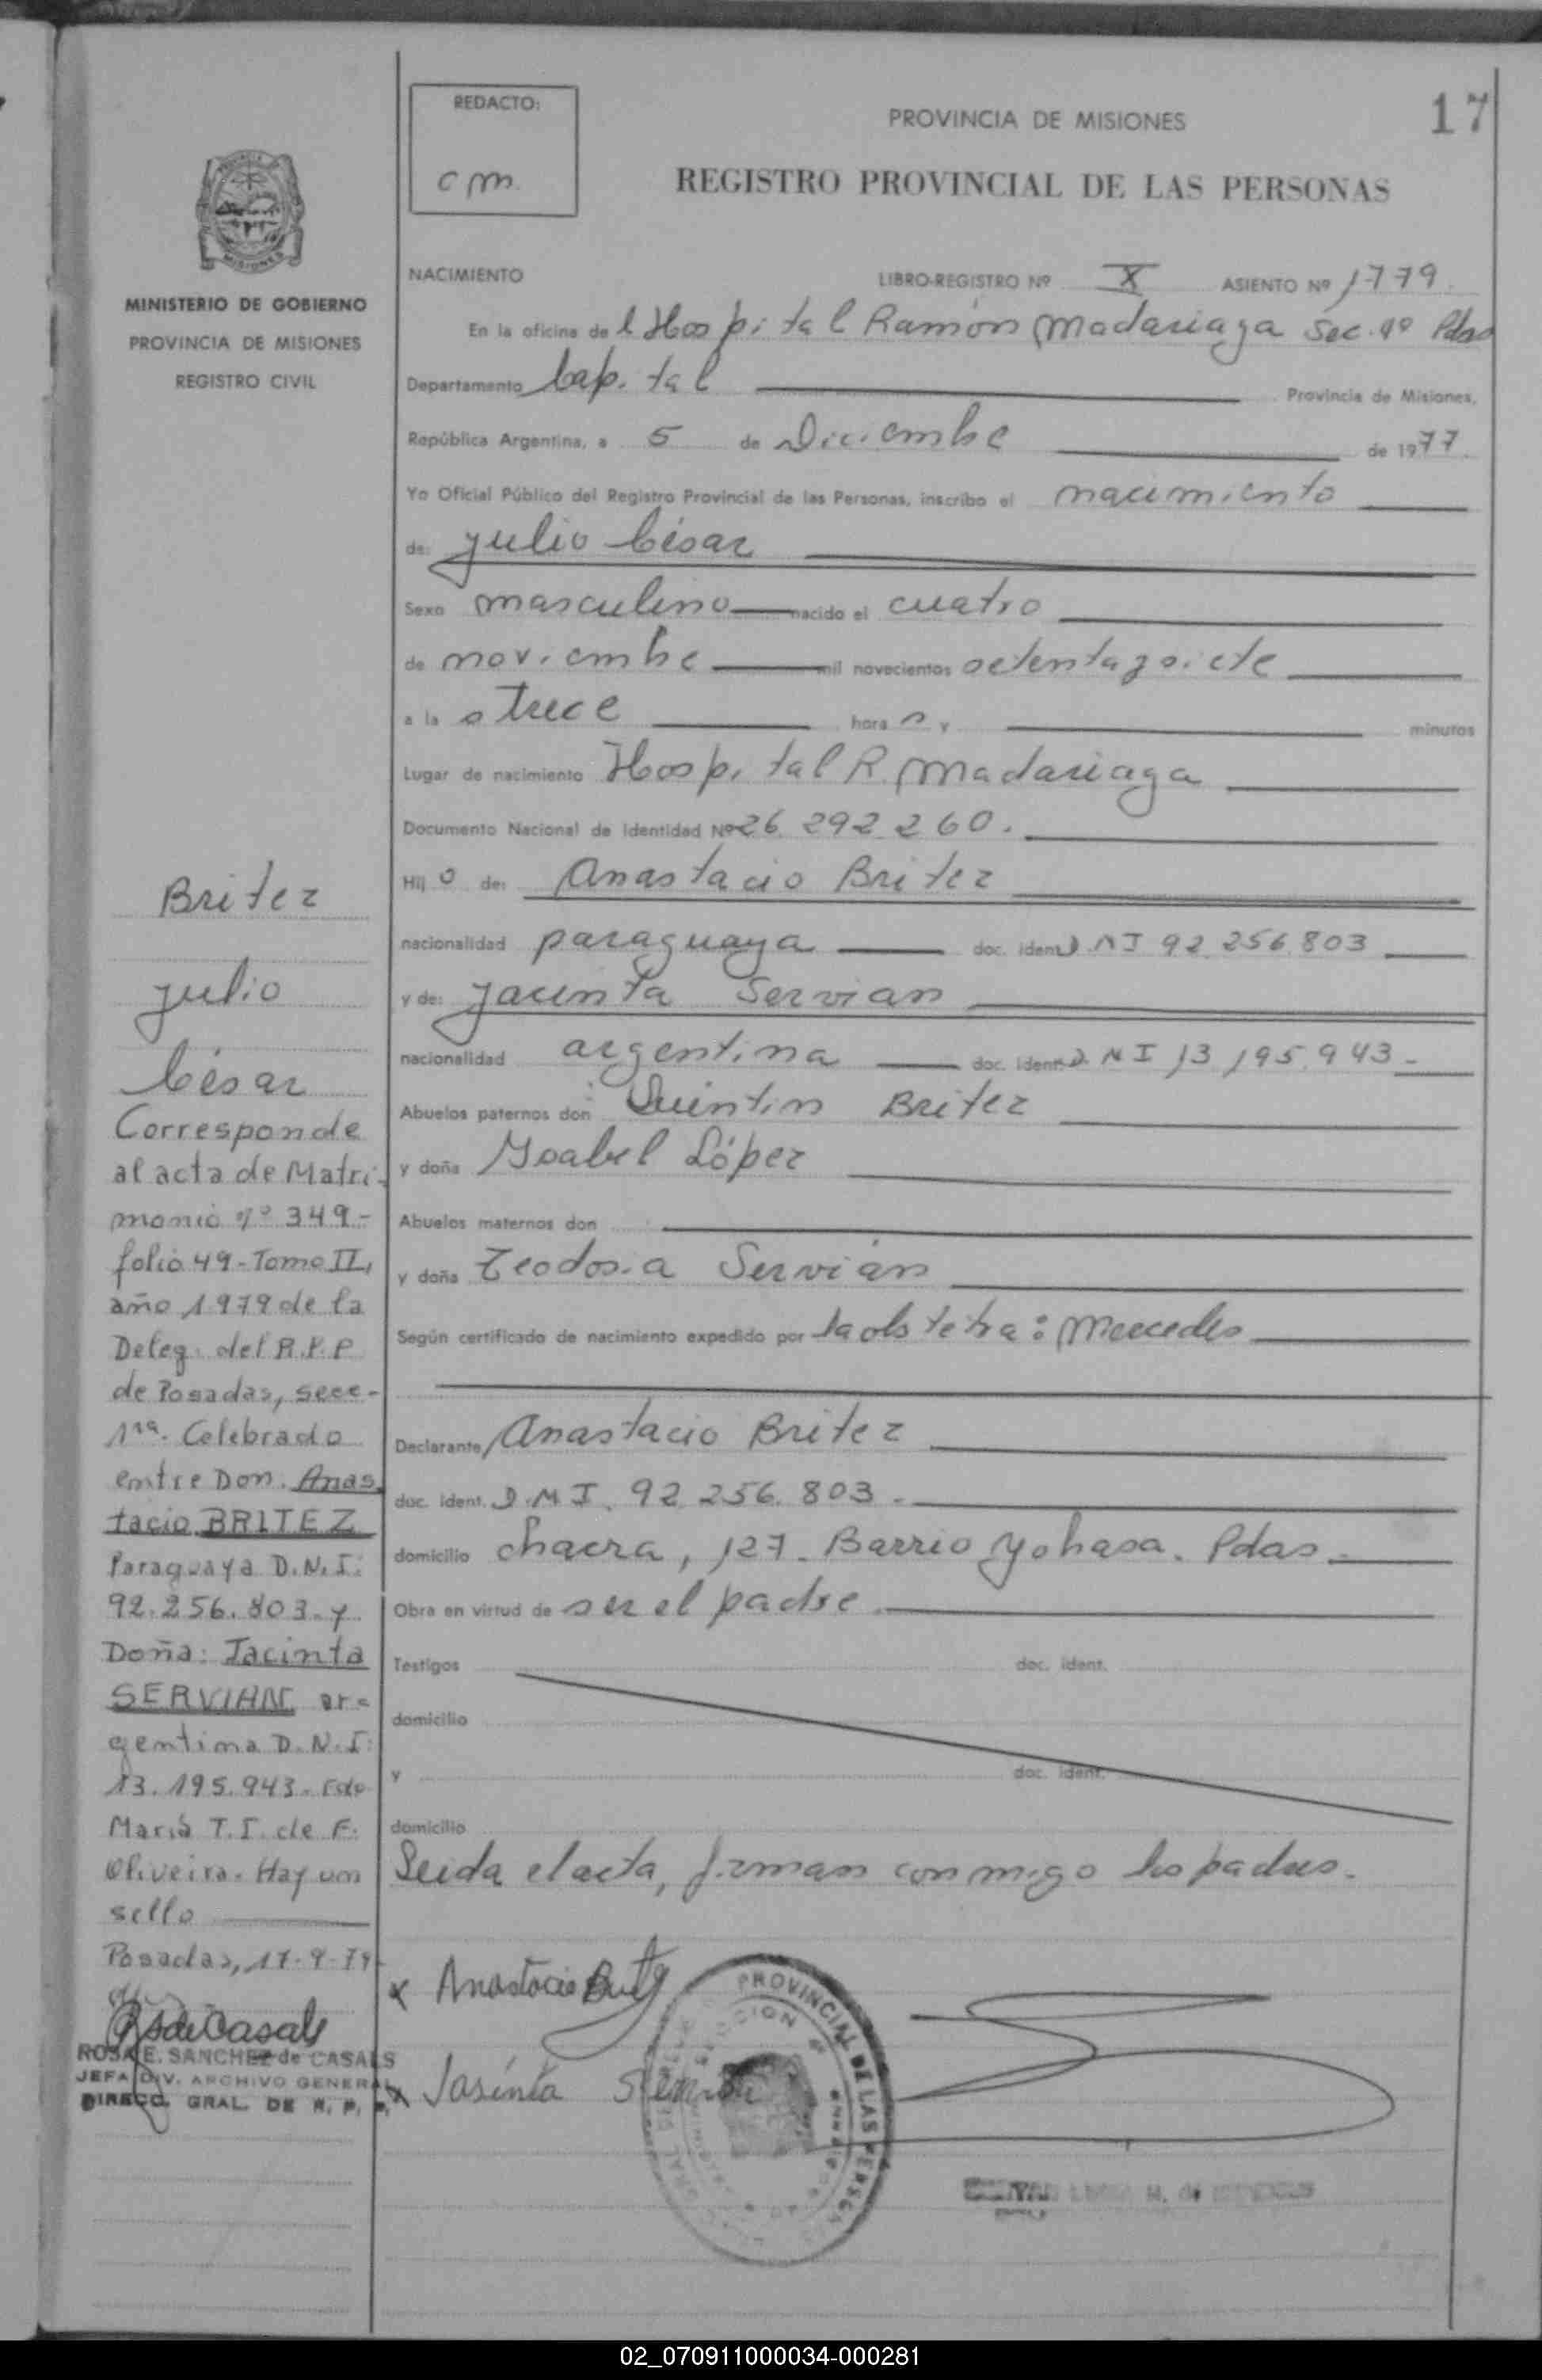 REDACTO:
cm.
PROVINCIA DE MISIONES
17
REGISTRO PROVINCIAL DE LAS PERSONAS
MISIONES
MINISTERIO DE GOBIERNO
PROVINCIA DE MISIONES
REGISTRO CIVIL
NACIMIENTO LIBRO-REGISTRO Nº X ASIENTO Nº 1779.
En la oficina del Hospital Ramón Madariaga Sec. 4º Pdas
Departamento Capital Provincia de Misiones,
República Argentina, a 5 de Diciembre de 1977.
Yo Oficial Público del Registro Provincial de las Personas, inscribo el nacimiento
de: Julio César
Sexo masculino nacido el cuatro
de noviembre mil novecientos setentaysiete
a las trece horas y minutos
Lugar de nacimiento Hospital R. Madariaga
Documento Nacional de Identidad Nº 26.292.260.
Hijo de: Anastacio Britez
nacionalidad paraguaya doc. ident. D.N.I 92.256.803
y de: Jacinta Servian
nacionalidad argentina doc. ident. D.N.I 13.195.943.-
Abuelos paternos don Quintin Britez
y doña Ysabel López
Abuelos maternos don
y doña Teodosia Servián
Según certificado de nacimiento expedido por la obstetra: Mercedes
Declarante, Anastacio Britez
doc. ident. D.N.I. 92.256.803.-
domicilio chacra, 127. Barrio Yohasa. Pdas.-
Obra en virtud de ser el padre.
Testigos doc. ident.
domicilio
y doc. ident.
domicilio
Leida el acta, firman conmigo los padres.-
x Anastacio Britez
x Jasinta Servian
PROVINCIAL DE LAS PERSONAS
Britez
Julio
César
Corresponde
al acta de Matri-
monio nº 349-
folio 49-Tomo II,
año 1979 de la
Deleg. del R.P.P
de Posadas, secc-
1ra. Celebrado
entre Don. Anas
tacio BRITEZ
Paraguaya D.N.I:
92.256.803.-y
Doña: Jacinta
SERVIAN ar-
gentina D.N.I:
13.195.943.- Fdo
María T.I. de F.
Oliveira. Hay un
sello
Posadas, 17-9-79
RSdeCasals
ROSA E. SANCHEZ de CASALS
JEFA DIV. ARCHIVO GENERAL
DIRECC. GRAL. DE R. P. P.
02_070911000034-000281